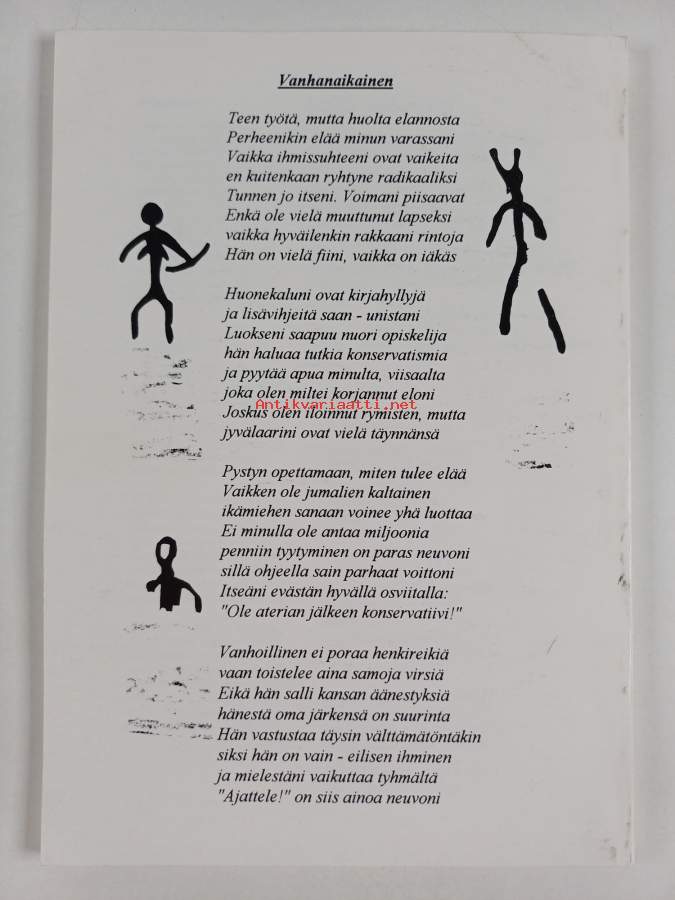 Vanhanaikainen
Teen työtä, mutta huolta elannosta
Perheenikin elää minun varassani
Vaikka ihmissuhteeni ovat vaikeita
en kuitenkaan ryhtyne radikaaliksi
Tunnen jo itseni. Voimani piisaavat
Enkä ole vielä muuttunut lapseksi
vaikka hyväilenkin rakkaani rintoja
Hän on vielä fiini, vaikka on iäkäs
Huonekaluni ovat kirjahyllyjä
ja lisävihjeitä saan - unistani
Luokseni saapuu nuori opiskelija
hän haluaa tutkia konservatismia
ja pyytää apua minulta, viisaalta
joka olen miltei korjannut eloni
Antikvariaatti.net
Joskus olen iloinnut rymisten, mutta
jyvälaarini ovat vielä täynnänsä
Pystyn opettamaan, miten tulee elää
Vaikken ole jumalien kaltainen
ikämiehen sanaan voinee yhä luottaa
Ei minulla ole antaa miljoonia
penniin tyytyminen on paras neuvoni
sillä ohjeella sain parhaat voittoni
Itseäni evästän hyvällä osviitalla:
"Ole aterian jälkeen konservatiivi!"
Vanhoillinen ei poraa henkireikiä
vaan toistelee aina samoja virsiä
Eikä hän salli kansan äänestyksiä
hänestä oma järkensä on suurinta
Hän vastustaa täysin välttämätöntäkin
siksi hän on vain - eilisen ihminen
ja mielestäni vaikuttaa tyhmältä
"Ajattele!" on siis ainoa neuvoni